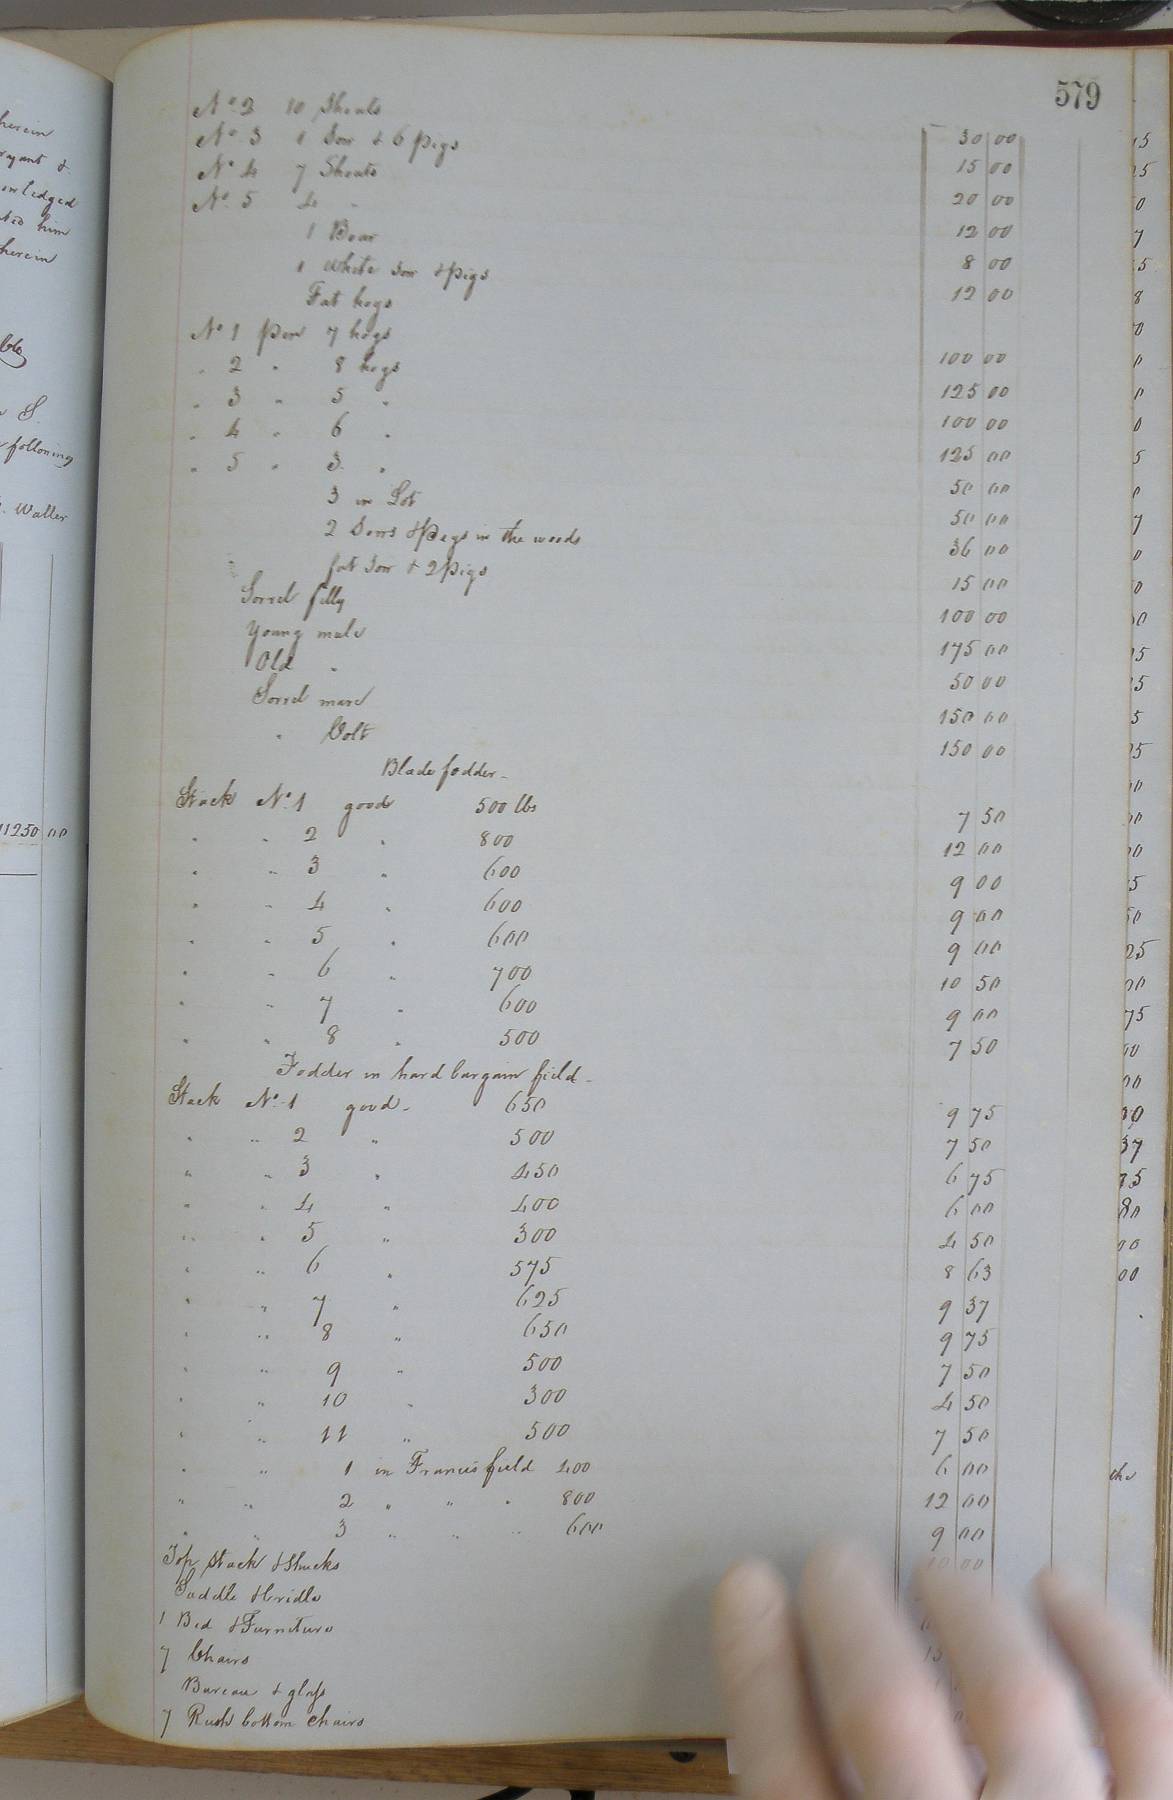 herein
owledged
him
herein
following
Waller
11250 00
579
No 2 10 Shoats 30 00
No 3 1 Sow & 6 pigs 15 00
No 4 7 Shoats 20 00
No 5 4 " 12 00
1 Boar 8 00
1 White Sow & pigs 12 00
Fat hogs
No 1 pen 7 hogs 100 00
" 2 " 8 hogs 125 00
" 3 " 5 " 100 00
" 4 " 6 " 125 00
" 5 " 3 " 50 00
3 in Lot 50 00
2 Sows & Pigs in the woods 36 00
fat Sow & 2 Pigs 15 00
Sorrel filly 100 00
Young mule 175 00
Old " 50 00
Sorrel mare 150 00
" Colt 150 00
Blade fodder -
Stack No 1 good 500 lbs 7 50
" " 2 " 800 12 00
" " 3 " 600 9 00
" " 4 " 600 9 00
" " 5 " 600 9 00
" " 6 " 700 10 50
" " 7 " 600 9 00
" " 8 " 500 7 50
Fodder in hard bargain field -
Stack No 1 good - 650 9 75
" " 2 " 500 7 50
" " 3 " 450 6 75
" " 4 " 400 6 00
" " 5 " 300 4 50
" " 6 " 575 8 63
" " 7 " 625 9 37
" " 8 " 650 9 75
" " 9 " 500 7 50
" " 10 " 300 4 50
" " 11 " 500 7 50
" " 1 in Francis field 400 6 00
" " 2 " " " 800 12 00
" " 3 " " " 600 9 00
Top Stack & Shucks 10 00
Saddle & bridle
1 Bed & Furniture
7 Chairs
Bureau & glass
7 Rush bottom Chairs